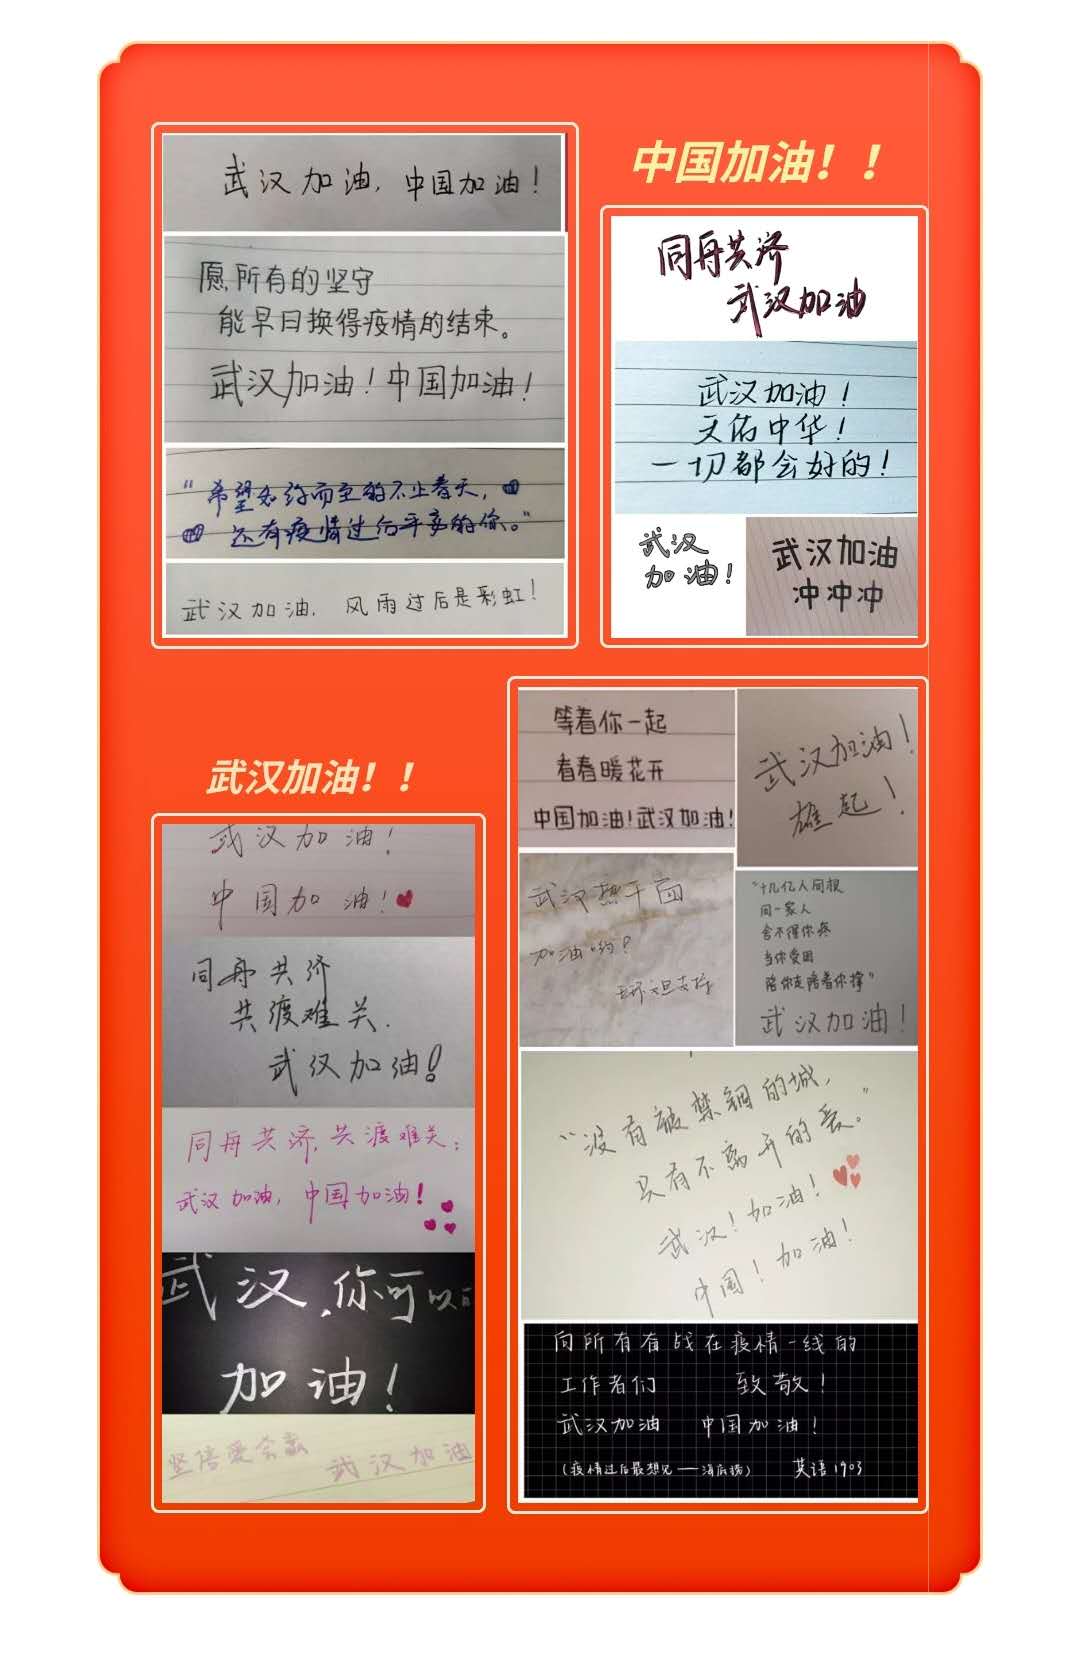 武汉加油，中国加油！
愿所有的坚守
能早日换得疫情的结束。
武汉加油！中国加油！
“希望如约而至的不止春天，
还有疫情过后平安的你。”
武汉加油，风雨过后是彩虹！
中国加油！！
同舟共济
武汉加油
武汉加油！
天佑中华！
一切都会好的！
武汉
加油！
武汉加油
冲冲冲
武汉加油！！
武汉加油！
中国加油！
同舟共济
共渡难关.
武汉加油！
同舟共济，共渡难关；
武汉加油，中国加油！
武汉，你可以
加油！
坚信爱会赢
武汉加油
等着你一起
看春暖花开
中国加油！武汉加油！
武汉加油！
雄起！
武汉热干面
加油哟？
“十几亿人同根
同一家人
舍不得你疼
当你受困
陪你走陪着你撑”
武汉加油！
“没有被禁锢的城，
只有不离开的爱。”
武汉！加油！
中国！加油！
向所有有战在疫情一线的
工作者们 致敬！
武汉加油 中国加油！
（疫情过后最想见——海底捞） 英语1903